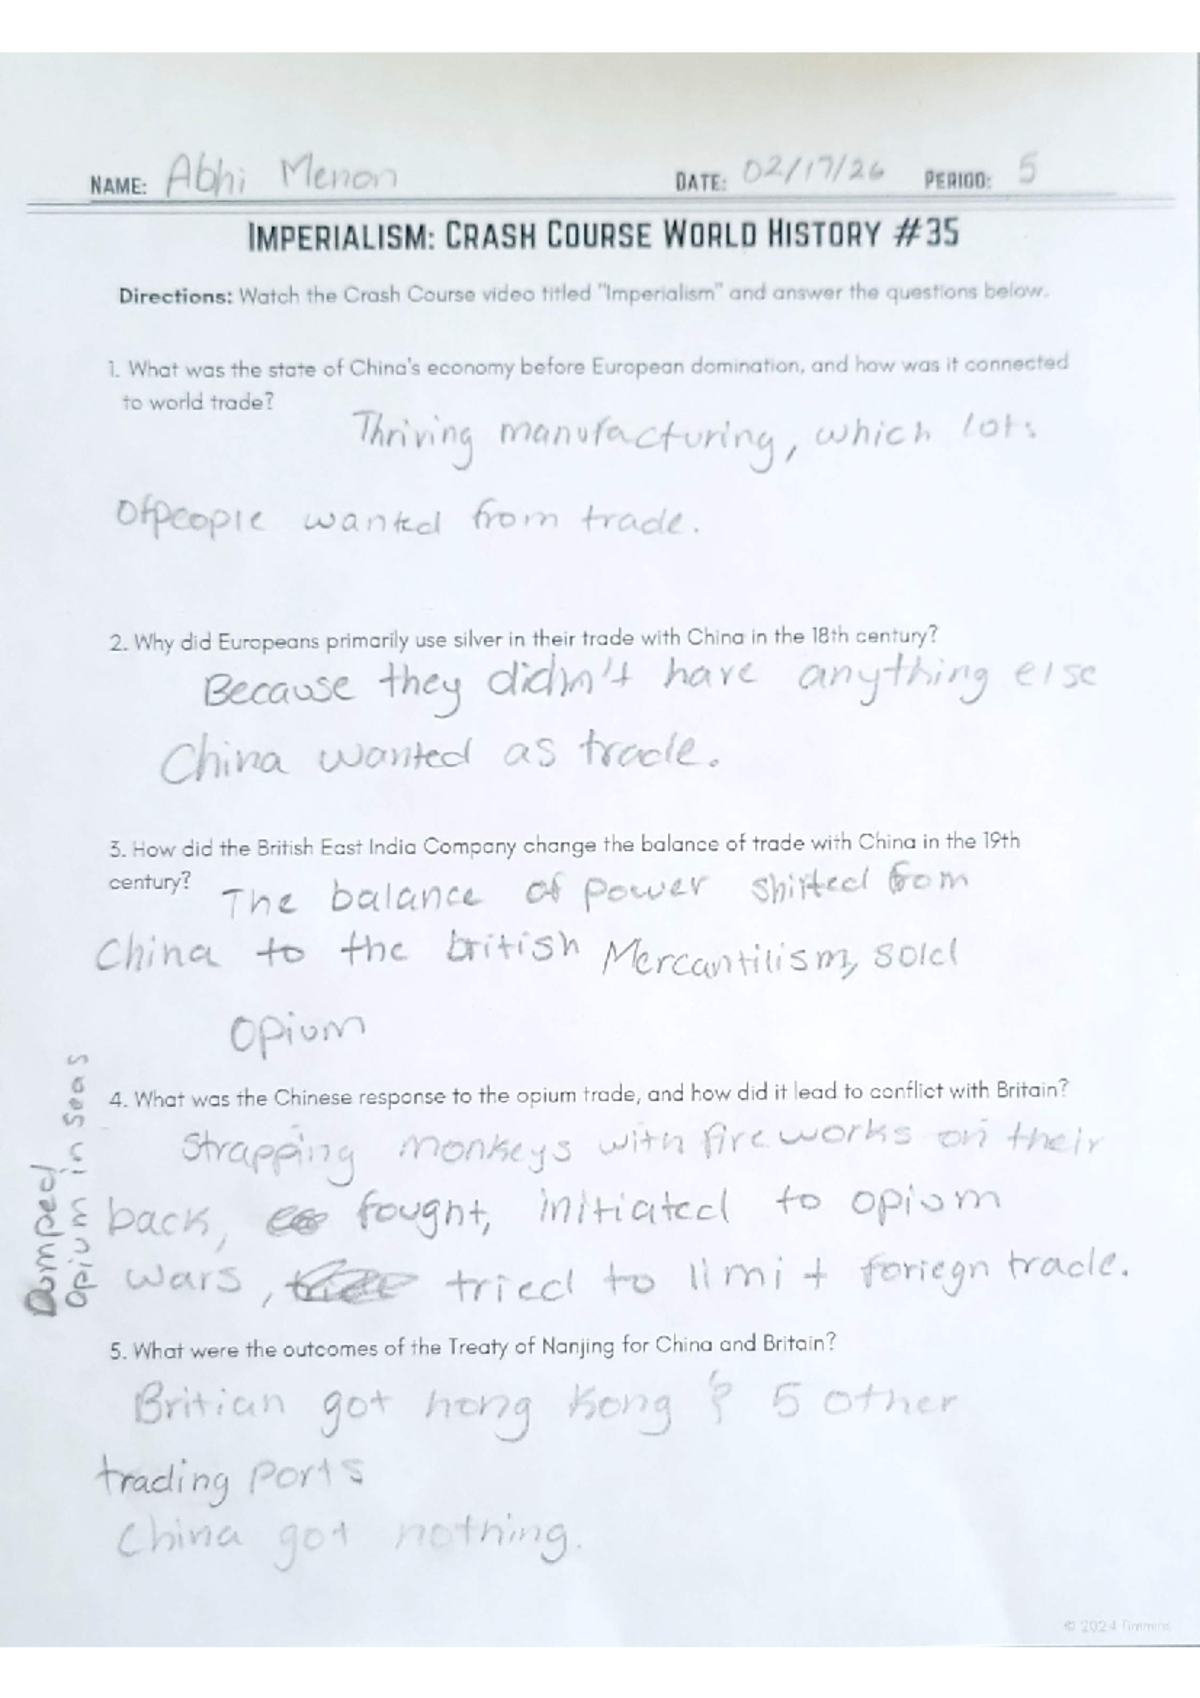 NAME: Abhi Menon DATE: 02/17/26 PERIOD: 5
IMPERIALISM: CRASH COURSE WORLD HISTORY #35
Directions: Watch the Crash Course video titled "Imperialism" and answer the questions below.
1. What was the state of China's economy before European domination, and how was it connected
to world trade?
Thriving manufacturing, which lots
Ofpeople wanted from trade.
2. Why did Europeans primarily use silver in their trade with China in the 18th century?
Because they didn't have anything else
China wanted as trade.
3. How did the British East India Company change the balance of trade with China in the 19th
century?
The balance of power shifted from
China to the british Mercantilism, sold
Opium
4. What was the Chinese response to the opium trade, and how did it lead to conflict with Britain?
Strapping monkeys with fireworks on their
back, fought, initiated to opium
wars, tried to limit foriegn trade.
Dumped
opium in seas
5. What were the outcomes of the Treaty of Nanjing for China and Britain?
Britian got hong Kong & 5 other
trading ports
China got nothing.
© 2024 Timmins